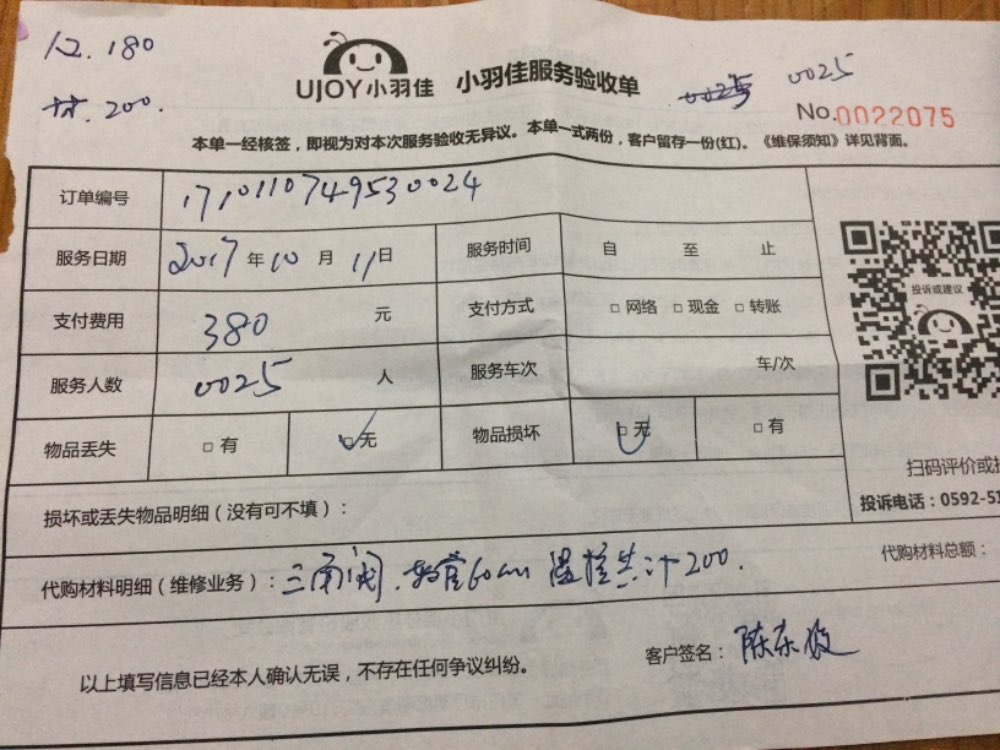 人.180
材.200.
UJOY小羽佳 小羽佳服务验收单
0025 0025
No.0022075
本单一经核签，即视为对本次服务验收无异议。本单一式两份，客户留存一份(红)。《维保须知》详见背面。
订单编号 1710110749530024
服务日期 2017年10月11日 服务时间 自 至 止
支付费用 380 元 支付方式 □网络 □现金 □转账
投诉或建议
服务人数 0025 人 服务车次 车/次
物品丢失 □有 □无 物品损坏 □无 □有
扫码评价或
损坏或丢失物品明细（没有可不填）：
投诉电话：0592-5
代购材料明细（维修业务）：三角阀.软管60cm 温控共计200.
代购材料总额：
以上填写信息已经本人确认无误，不存在任何争议纠纷。
客户签名：陈东